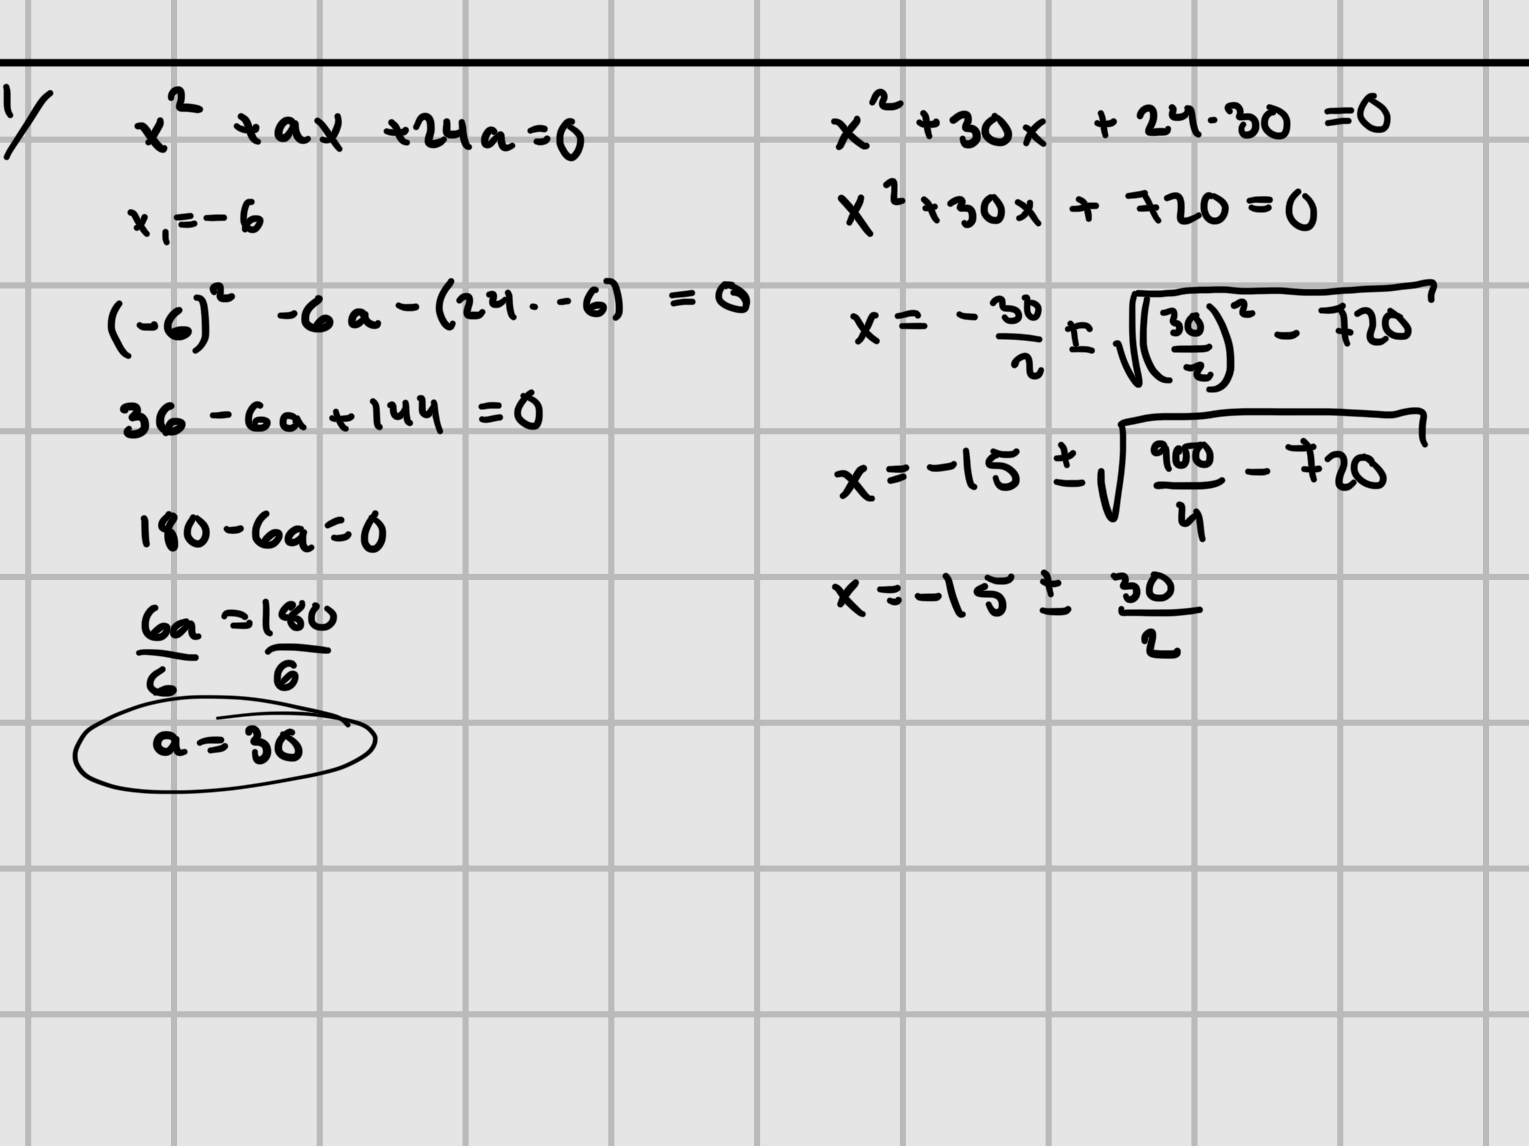 1/ x² + ax + 24a = 0
x₁ = -6
(-6)² - 6a - (24 · -6) = 0
36 - 6a + 144 = 0
180 - 6a = 0
6a/6 = 180/6
a = 30
x² + 30x + 24·30 = 0
x² + 30x + 720 = 0
x = -30/2 ± √((30/2)² - 720)
x = -15 ± √(900/4 - 720)
x = -15 ± 30/2